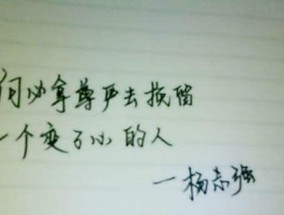 何必拿尊严去挽留
一个变了心的人
—杨志强